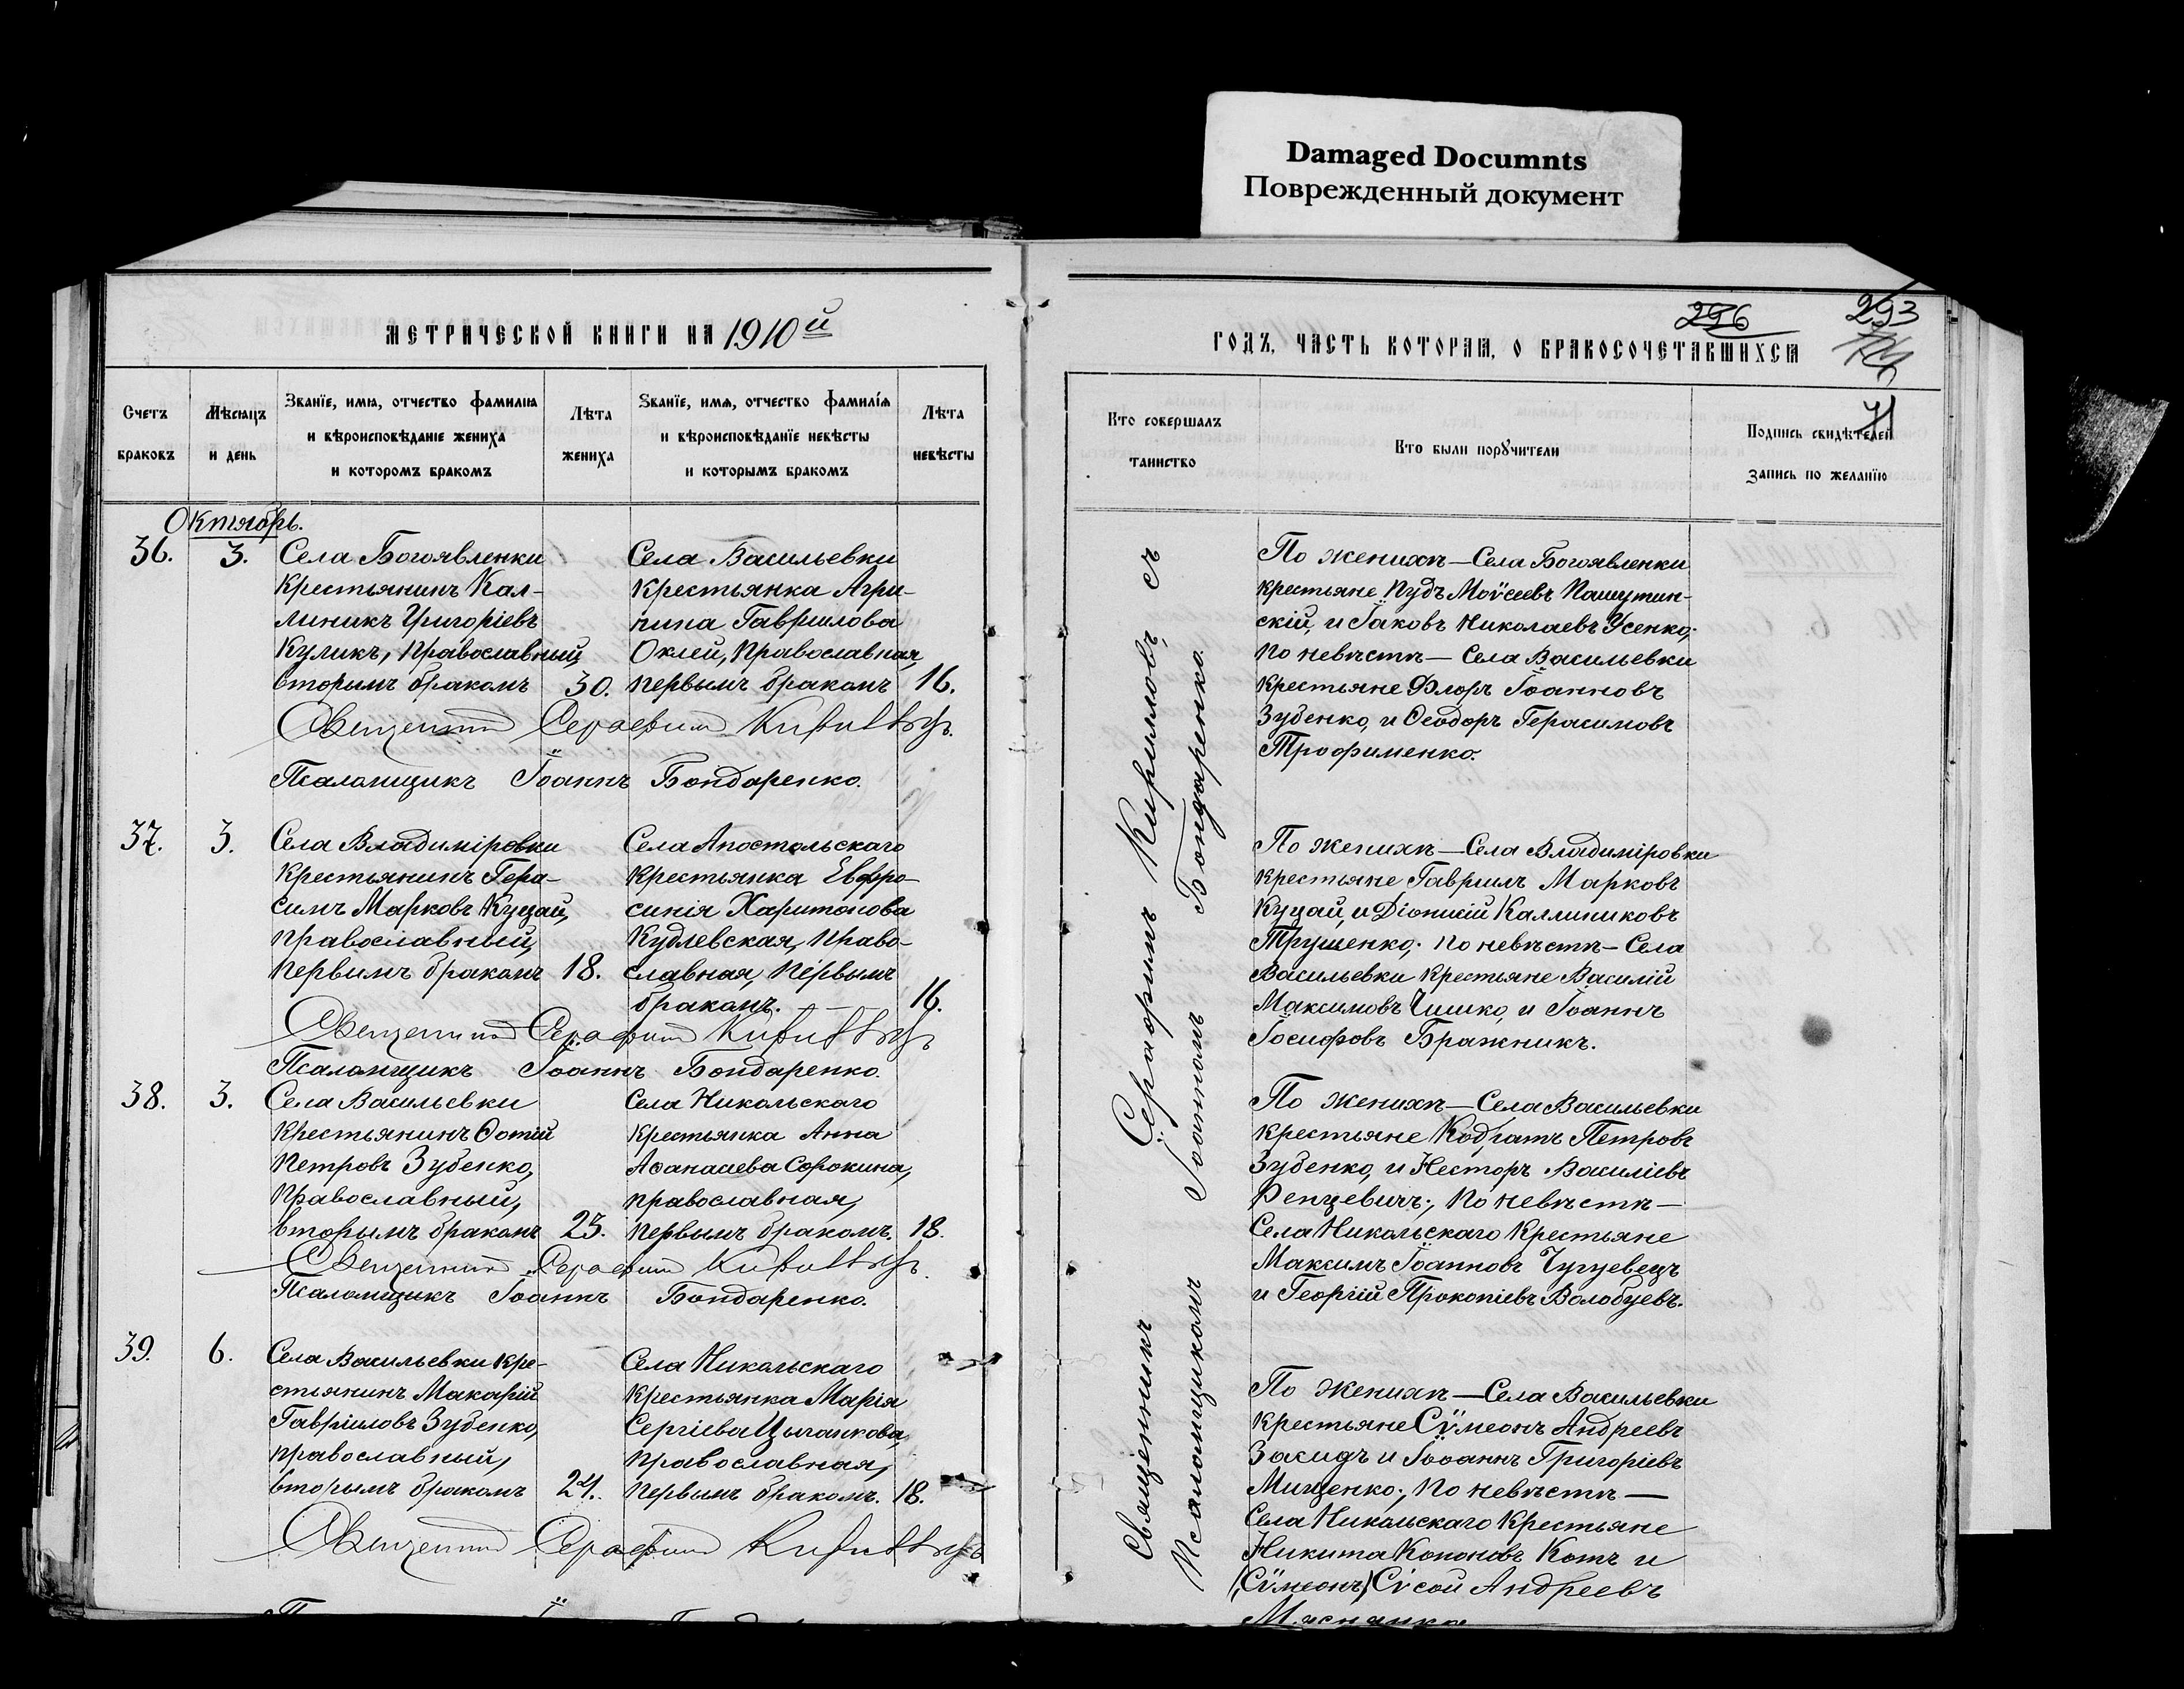 Damaged Documnts
Поврежденный документ
МЕТРИЧЕСКОЙ КНИГИ НА 1910й
Счетъ
браковъ
Мѣсяцъ
и день
Званїе, имя, отчество фамилія
и вѣроисповѣданіе жениха
и которомъ бракомъ
Лѣта
жениха
Званїе, имя, отчество фамилія
и вѣроисповѣданїе невѣсты
и которымъ бракомъ
Лѣта
невѣсты
Октябрь.
36.
3.
Села Богоявленки
крестьянинъ Кал-
линикъ Григоріевъ
Куликъ, православный,
вторымъ бракомъ
30.
Села Васильевки
крестьянка Агри-
пина Гавріилова
Оклей, православная,
первымъ бракомъ
16.
Священникъ Серафимъ Кириловъ
Псаломщикъ Іоаннъ Бондаренко.
37.
3.
Села Владиміровки
крестьянинъ Гера-
симъ Марковъ Куцай,
православный,
первымъ бракомъ
18.
Села Апостольскаго
крестьянка Евфро-
синія Харитонова
Кудлевская, право-
славная, первымъ
бракомъ.
16.
Священникъ Серафимъ Кириловъ
Псаломщикъ Іоаннъ Бондаренко.
38.
3.
Села Васильевки
крестьянинъ Ѳотій
Петровъ Зубенко,
православный,
вторымъ бракомъ
23.
Села Никольскаго
крестьянка Анна
Аѳанасіева Сорокина,
православная,
первымъ бракомъ.
18.
Священникъ Серафимъ Кириловъ
Псаломщикъ Іоаннъ Бондаренко.
39.
6.
Села Васильевки кре-
стьянинъ Макарій
Гавріиловъ Зубенко,
православный,
вторымъ бракомъ
24.
Села Никольскаго
крестьянка Марія
Сергіева Цыганкова,
православная,
первымъ бракомъ.
18.
Священникъ Серафимъ Кириловъ
296
293
ГОДЪ, ЧАСТЬ КОТОРАЯ, О БРАКОСОЧЕТАВШИХСЯ
Кто совершалъ
таинство
Кто были поручители
Подпись свидѣтелей
запись по желанїю
Священникъ Серафимъ Кирилловъ съ
Псаломщикомъ Іоанномъ Бондаренко.
По женихѣ — Села Богоявленки
крестьяне Пудъ Моѵсеевъ Пашутин-
скій, и Іаковъ Николаевъ Усенко;
по невѣстѣ — Села Васильевки
крестьяне Флоръ Іоанновъ
Зубенко, и Ѳеодоръ Герасимовъ
Трофименко.
По женихѣ — Села Владиміровки
крестьяне Гавріилъ Марковъ
Куцай, и Діонисій Каллиниковъ
Трушенко; по невѣстѣ — Села
Васильевки крестьяне Василій
Максимовъ Чишко, и Іоаннъ
Іосифовъ Бражникъ.
По женихѣ — Села Васильевки
крестьяне Кодратъ Петровъ
Зубенко, и Несторъ Василіевъ
Ренцевичъ; по невѣстѣ —
Села Никольскаго крестьяне
Максимъ Іоанновъ Чугуевецъ
и Георгій Прокопіевъ Волобуевъ.
По женихѣ — Села Васильевки
крестьяне Сѵмеонъ Андреевъ
Закидъ и Іоаннъ Григоріевъ
Мищенко; по невѣстѣ —
Села Никольскаго крестьяне
Никита Кононовъ Котъ и
(Сѵмеонъ) Сѵсой Андреевъ